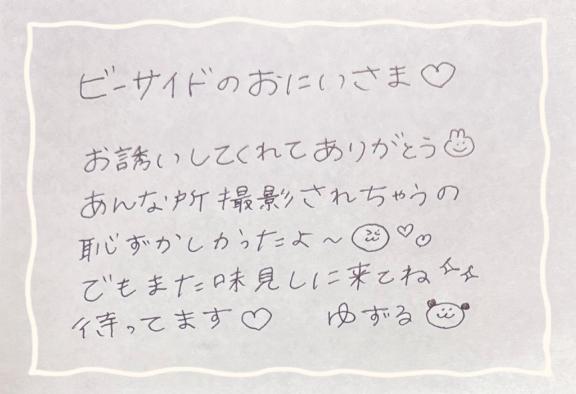 ビーサイドのおにいさま♡
お誘いしてくれてありがとう
あんな所撮影されちゃうの
恥ずかしかったよ～♡♡
でもまた味見しに来てね☆☆
待ってます♡ ゆずる